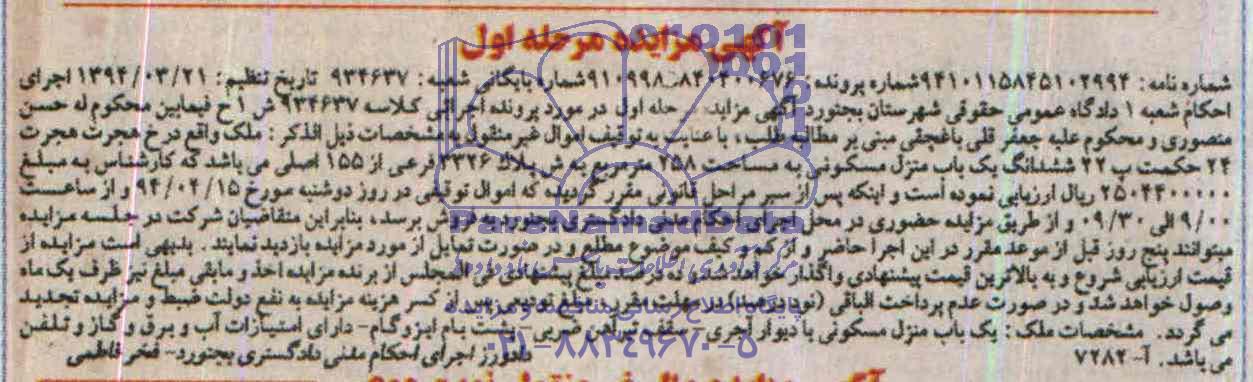 آگهی مزایده مرحله اول
شماره نامه: ۹۴۱۰۱۱۵۸۴۵۱۰۲۹۹۴ شماره پرونده: شماره بایگانی شعبه: ۹۳۴۶۳۷ تاریخ تنظیم: ۱۳۹۴/۰۳/۲۱ اجرای
احکام شعبه ۱ دادگاه عمومی حقوقی شهرستان بجنورد آگهی مزایده مرحله اول در مورد پرونده اجرائی کلاسه ۹۳۴۶۳۷ ش ۱ ح فیمابین محکوم له حسن
منصوری و محکوم علیه جعفر قلی باغچقی مبنی بر مطالبه طلب، با عنایت به توقیف اموال غیر منقول به مشخصات ذیل الذکر: ملک واقع در خ هجرت هجرت
۲۴ حکمت پ ۲۲ ششدانگ یک باب منزل مسکونی به مساحت ۲۵۸ متر مربع به ش پلاک ۲۳۲۶ فرعی از ۱۵۵ اصلی می باشد که کارشناس به مبلغ
۲۵۰۴۴۰۰۰۰۰ ریال ارزیابی نموده است و اینکه پس از سیر مراحل قانونی مقرر گردیده که اموال توقیفی در روز دوشنبه مورخ ۹۴/۰۴/۱۵ و از ساعت
۹/۰۰ الی ۰۹/۳۰ و از طریق مزایده حضوری در محل اجرای احکام مدنی دادگستری بجنورد به فروش برسد، بنابراین متقاضیان شرکت در جلسه مزایده
میتوانند پنج روز قبل از موعد مقرر در این اجرا حاضر و از کم و کیف موضوع مطلع و در صورت تمایل از مورد مزایده بازدید نمایند. بدیهی است مزایده از
قیمت ارزیابی شروع و به بالاترین قیمت پیشنهادی واگذار خواهد شد مبلغ پیشنهادی فی المجلس از برنده مزایده اخذ و مابقی مبلغ نیز ظرف یک ماه
وصول خواهد شد و در صورت عدم پرداخت الباقی در مهلت مقرر، مبلغ تودیعی پس از کسر هزینه مزایده به نفع دولت ضبط و مزایده تجدید
می گردد. مشخصات ملک: یک باب منزل مسکونی با دیوار آجری- سقف تیرآهن ضربی- پشت بام ایزوگام- دارای امتیازات آب و برق و گاز و تلفن
می باشد. آ-۷۲۸۲ دادورز اجرای احکام مدنی دادگستری بجنورد- فخر فاطمی
ParsNamadData
پایگاه اطلاع رسانی مناقصه و مزایده
۰۲۱-۸۸۳۴۹۶۷۰-۵